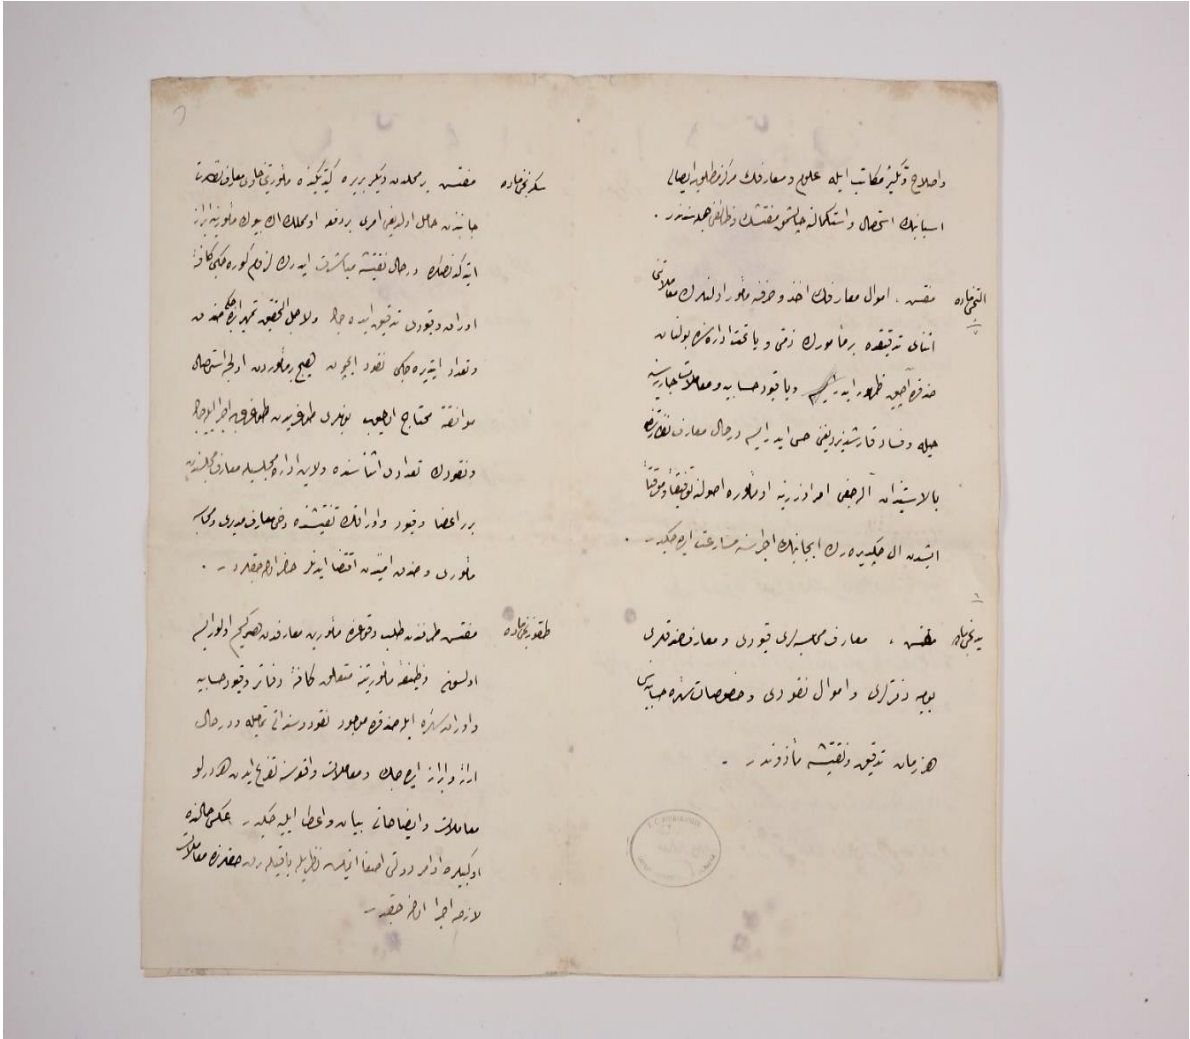 واصلاح و تكثير مكاتب ايله علوم و معارفك مركز مطلوبه ايصالى
اسبابنك استحصال و استكمالنه چالشمق مفتشك وظائفى جمله سندندر .
التنجى ماده
مفتش ، اموال معارفك اخذ و صرفنه مأمور اولنلرك معاملاتنى
اثناى تدقيقده بر مأمورك ذمتى و يا تحت اداره سنده بولنان
صندقده آچيق ظهور ايدر ايسه و يا قيود حسابيه و معاملات جاريه سنه
حيله و فساد قارشديرديغنى حس ايدر ايسه درحال معارف نظارتندن
بالاستيذان آله جغى امر اوزرينه او مأموره اصولنه توفيقاً موقتاً
ايشدن ال چكديره رك ايجابنك اجراسنه مسارعت ايده جكدر .
يدنجى ماده
مفتش ، معارف محاسبه لرى قيودى و معارف صندقلرى
يوميه دفترلرى و اموال نقودى و خصوصات سائره حسابيه سنى
هر زمان تدقيق و تفتيشه مأذوندر .
سكزنجى ماده
مفتش بر محلدن ديكر بر يره كيتديكنده مأموريتنى حاوى معارف نظارت
جانبندن حامل اولديغى امرى بر دفعه او محلك اك بيوك مأمورينه ابراز
ايتدكدنصكره درحال تفتيشه مباشرت ايدرك لزوم كوره جكى كافۀ
اوراق و قيودى تدقيق ايده جك ولاجل التحقيق تمهير ايده جكى صندق
و تعداد ايتديره جكى نقود ايچون هيچ بر مأموردن اولجه استحصال
موافقته محتاج اولميوب بونلرى طوغريدن طوغرى يه اجرا ايليه جك
و نقودك تعدادى اثناسنده ولايت اداره مجلسيله معارف مجلسندن
برر اعضا و قيود و اوراقك تفتيشنده دخى معارف مديرى و محاسبه
مأمورى و صندق امينندن اقتضا ايدنلر حاضر اوله جقلردر .
طقوزنجى ماده
مفتش طرفندن طلب وقوعنده مأمورين معارفدن هر كيم اولور ايسه
اولسون وظيفۀ مأموريتنه متعلق كافۀ دفاتر و قيود حسابيه
و اوراق سائره ايله صندقده موجود نقود و سنداتى تماميله و درحال
ارائه و ابراز ايده جك و معاملات واقعه سنه تفرع ايدن هر درلو
معاملات و ايضاحاتى بيان و اعطا ايليه جكدر عكسى حالنده
اوكبيلره اوامر دولتى اصغا ايتمامش نظريله باقيله رق حقلرنده معاملات
لازمه اجرا اولنه جقدر